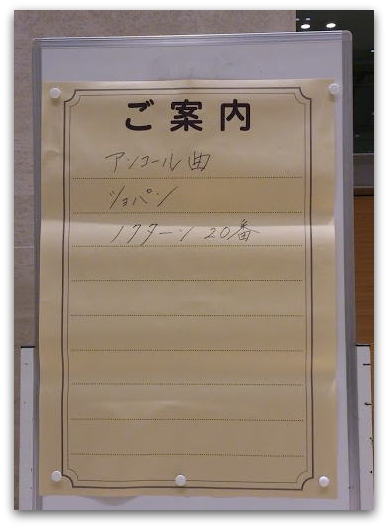 ご案内
アンコール曲
ショパン
ノクターン 20番